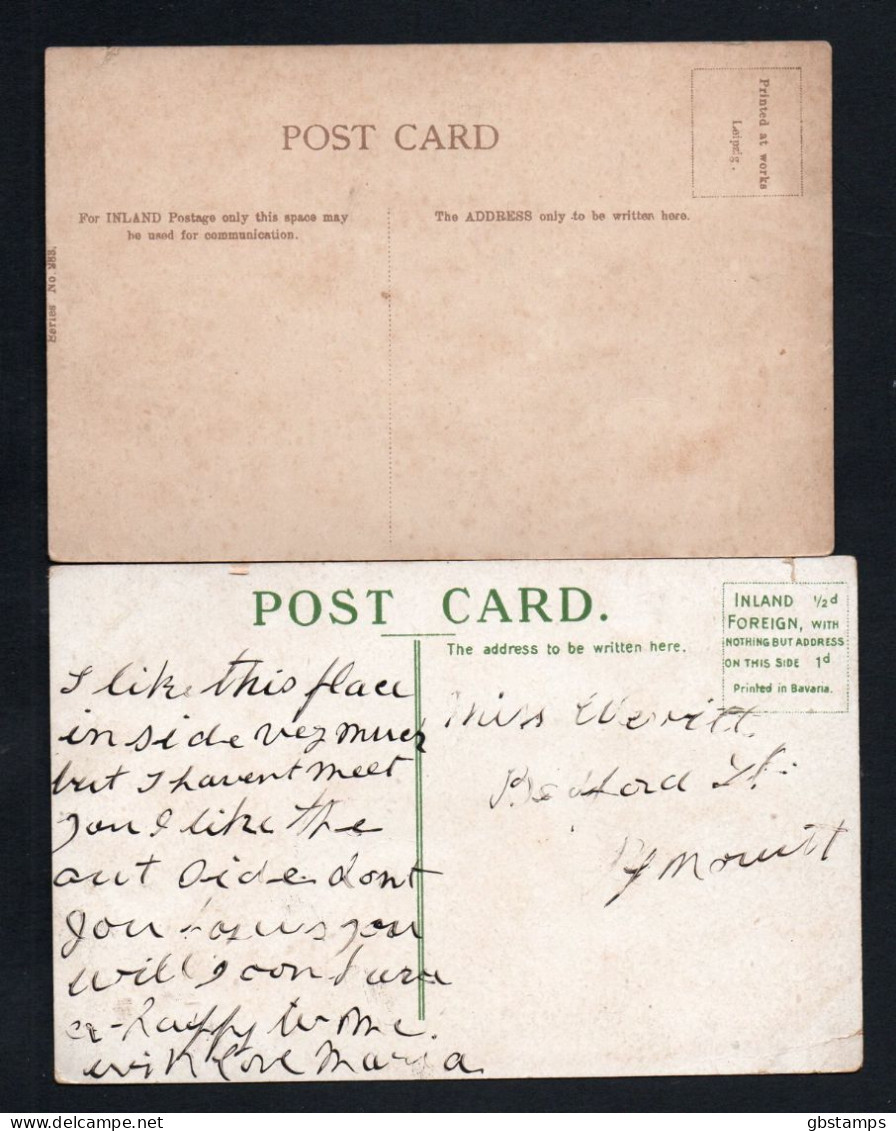 POST CARD
Printed at works
Leipzig.
For INLAND Postage only this space may
be used for communication.
The ADDRESS only to be written here.
Series No. 283.
POST CARD.
INLAND ½d
FOREIGN, WITH
NOTHING BUT ADDRESS
ON THIS SIDE 1d
Printed in Bavaria.
The address to be written here.
I like this place
inside very much
but I havent meet
you I like the
out Side dont
you
will I
happy to me.
with love Maria
Miss
gbstamps